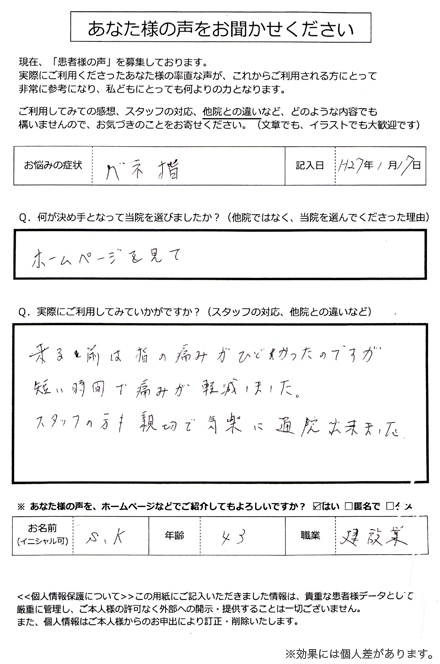 あなた様の声をお聞かせください
現在、「患者様の声」を募集しております。
実際にご利用くださったあなた様の率直な声が、これからご利用される方にとって
非常に参考になり、私どもにとっても何よりの力となります。
ご利用してみての感想、スタッフの対応、他院との違いなど、どのような内容でも
構いませんので、お気づきのことをお寄せください。（文章でも、イラストでも大歓迎です）
お悩みの症状 バネ指 記入日 H27年1月17日
Q．何が決め手となって当院を選びましたか？（他院ではなく、当院を選んでくださった理由）
ホームページを見て
Q．実際にご利用してみていかがですか？（スタッフの対応、他院との違いなど）
来る前は指の痛みがひどかったのですが
短い時間で痛みが軽減しました。
スタッフの方も親切で気楽に通院出来ました。
※ あなた様の声を、ホームページなどでご紹介してもよろしいですか？ ☑はい □匿名で
お名前 (イニシャル可) S.K 年齢 43 職業 建設業
<<個人情報保護について>>この用紙にご記入いただきました情報は、貴重な患者様データとして
厳重に管理し、ご本人様の許可なく外部への開示・提供することは一切ございません。
また、個人情報はご本人様からのお申出により訂正・削除いたします。
※効果には個人差があります。